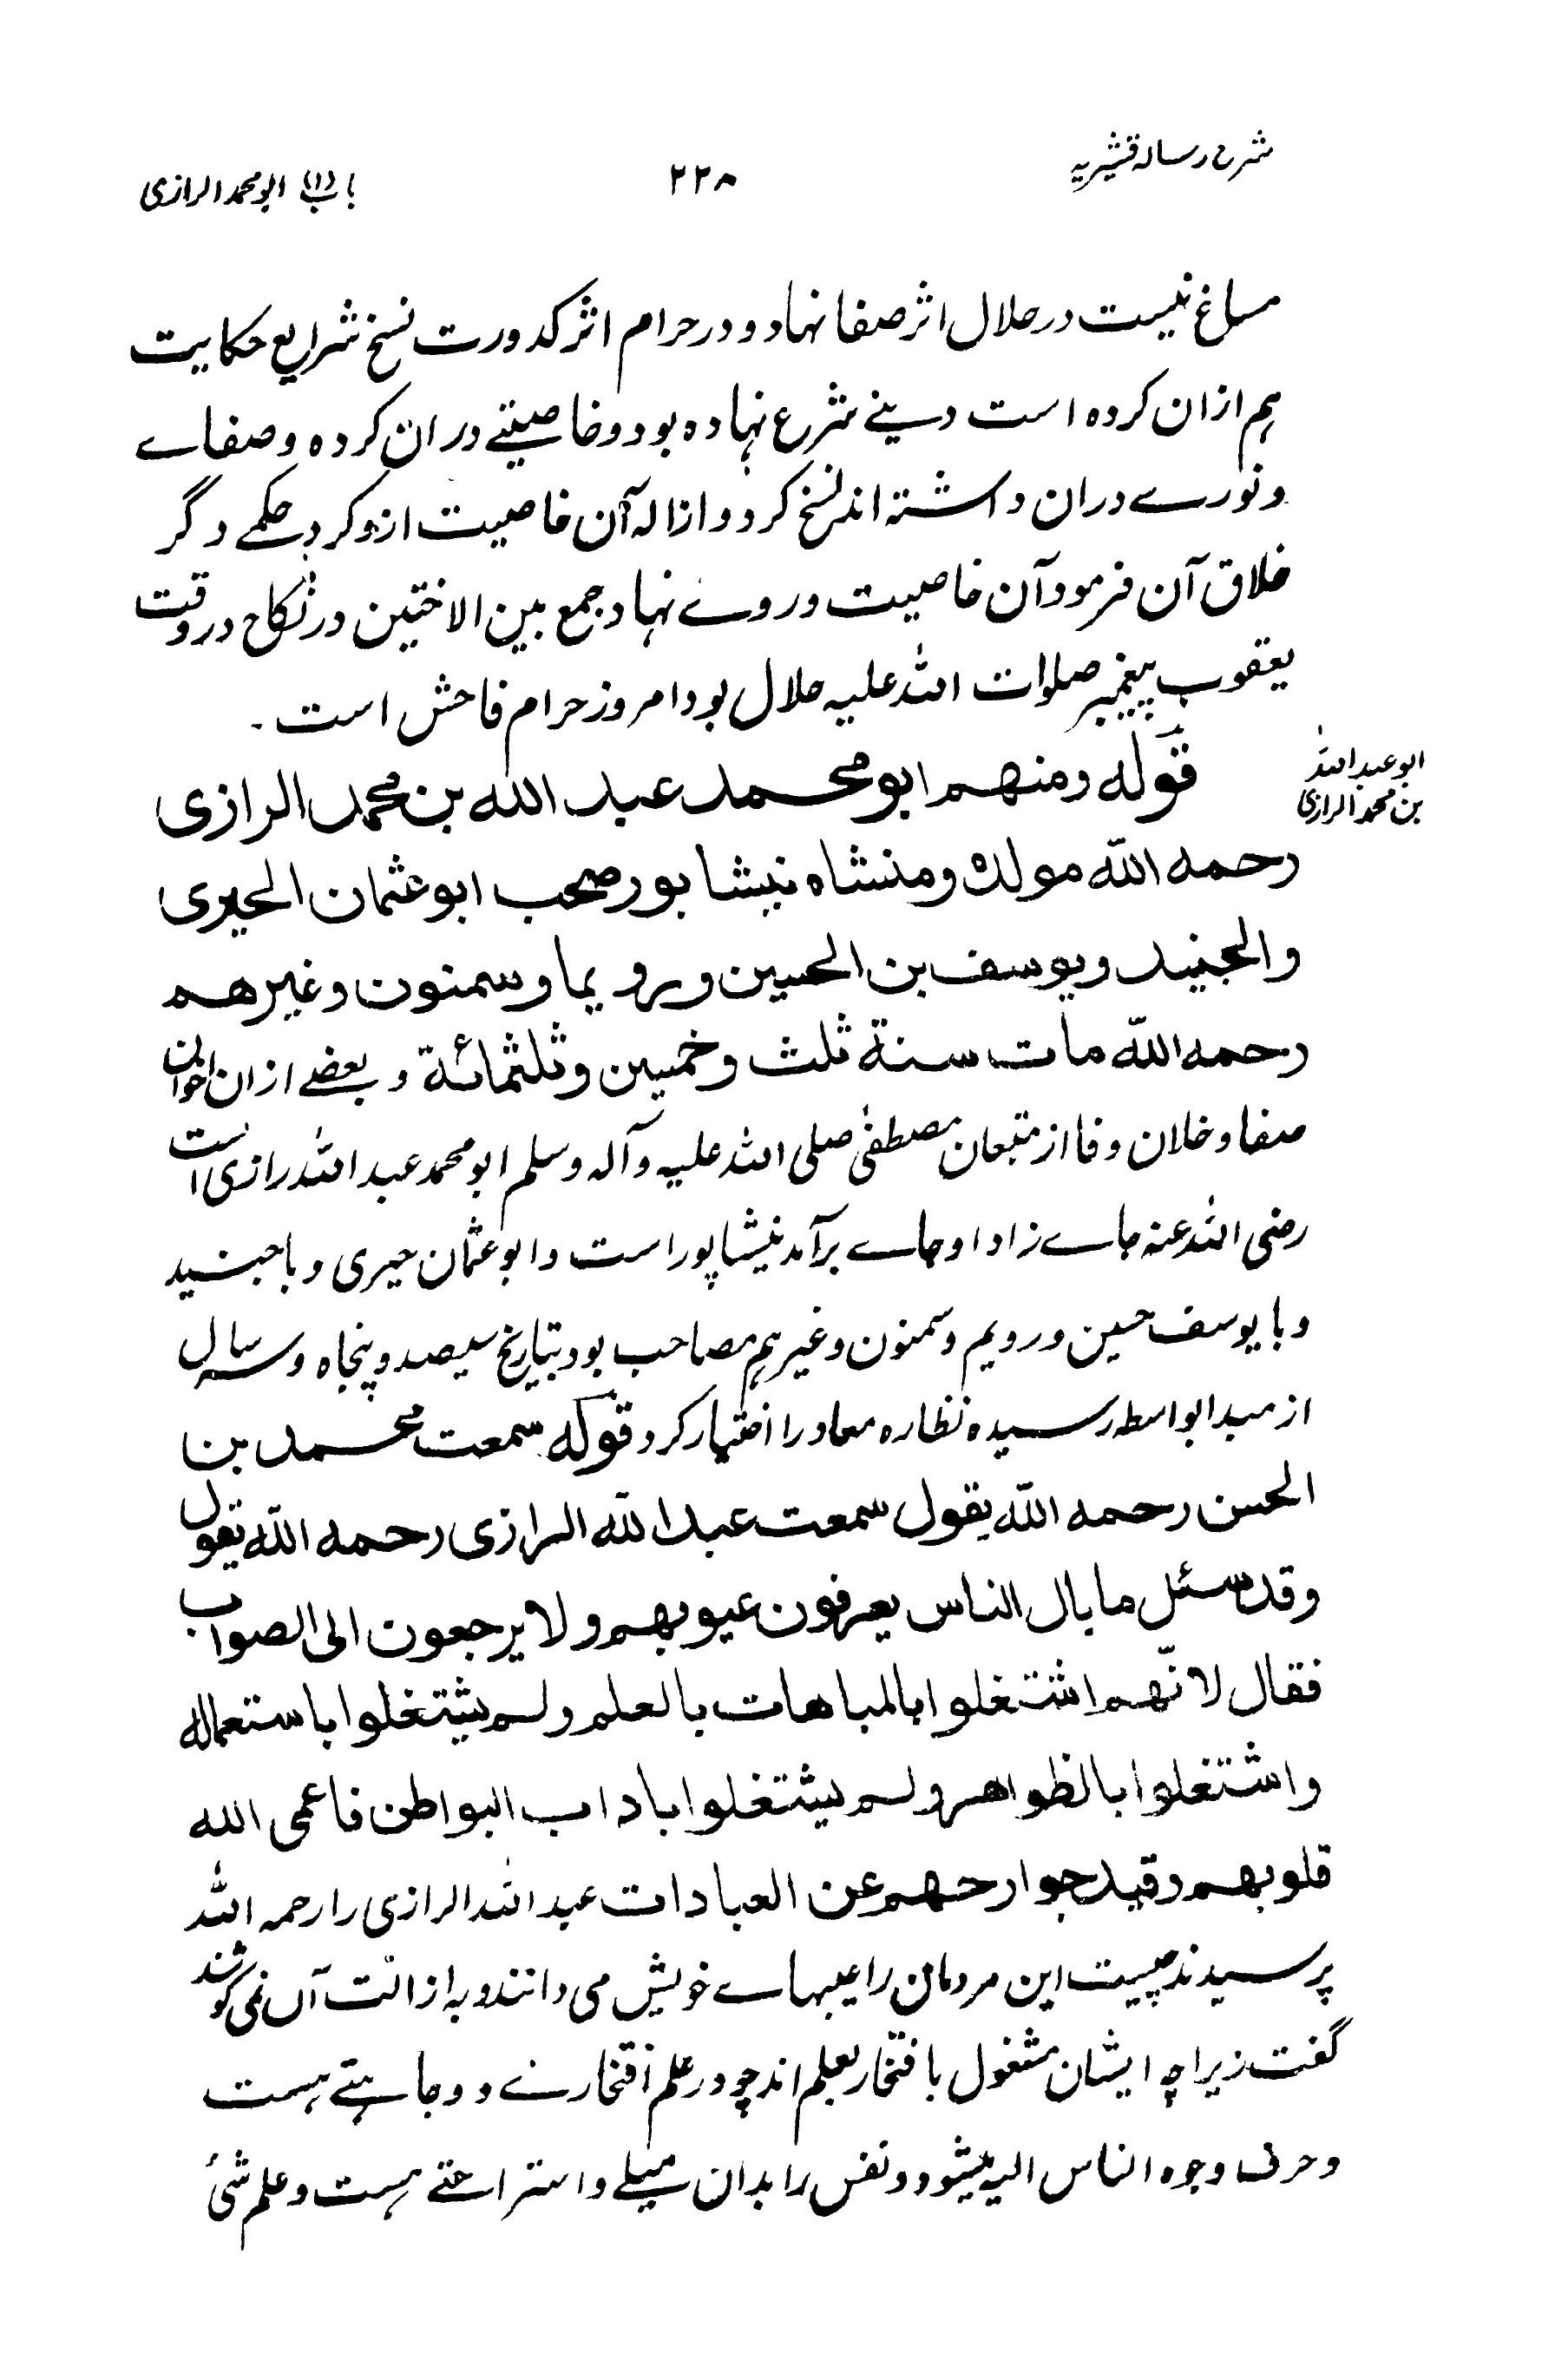 شرح رسالہ قشیریہ
۲۲۸
باب (۱) ابو محمد الرازی
مساغ نیست در حلال اثر صفا نهاد و در حرام اثر کدورت نسخ شرایع حکایت
ہم ازان کرده است دینے شرع نہاده بود و خاصیتے دران کرده و صفاے
و نورے دران داشتہ اند نسخ کرد و ازالہ آن خاصیت ازو کرد حکمے دگر
خلاق آن فرمود آن خاصیت در وے نہاد جمع بین الاختین در نکاح در وقت
یعقوب پیغمبر صلوات اللہ علیہ حلال بود امروز حرام فاحش است ۔
ابو عبد اللہ
بن محمد الرازی
قوله ومنهم ابو محمد عبد الله بن محمد الرازی
رحمه الله مولده ومنشاه نیشابور صحب ابو عثمان الحیری
والجنید ویوسف بن الحسین ورویما وسمنون وغیرهم
رحمه الله مات سنة ثلث وخمسین وثلثمائة و بعضے ازان اخوان
صفا و خلان وفا از متبعان مصطفیٰ صلی اللہ علیہ وآلہ وسلم ابو محمد عبد اللہ رازی است
رضی اللہ عنہ جاے زاد او جاے برآمد نیشاپور است و ابو عثمان حیری و با جنید
و با یوسف حسین و رویم و سمنون و غیر ہم مصاحب بود بتاریخ سیصد و پنجاہ و سہ سال
از مبدا بواسطہ رسیدہ نظارہ معاد را اختیار کرد قوله سمعت محمد بن
الحسن رحمه الله یقول سمعت عبد الله الرازی رحمه الله یقول
وقد سئل ما بال الناس یعرفون عیوبهم ولا یرجعون الی الصواب
فقال لانّهم اشتغلوا بالمباهات بالعلم ولم یشتغلوا باستعماله
واشتغلوا بالظواهر ولم یشتغلوا باداب البواطن فاعمی الله
قلوبهم وقید جوارحهم عن العبادات عبد اللہ الرازی را رحمہ اللہ
پرسیدند چیست این مردمان را عیبہاے خویش می دانند و بہ ازالت آں نمی کوشند
گفت زیراچہ ایشان مشغول با فتخار بعلم اند چو در علم افتخارے و وجاہتے ہست
و حرف وجوہ الناس الیہ میشود و نفس را بدان میلے و استراحتے ہست و علم شیٔ